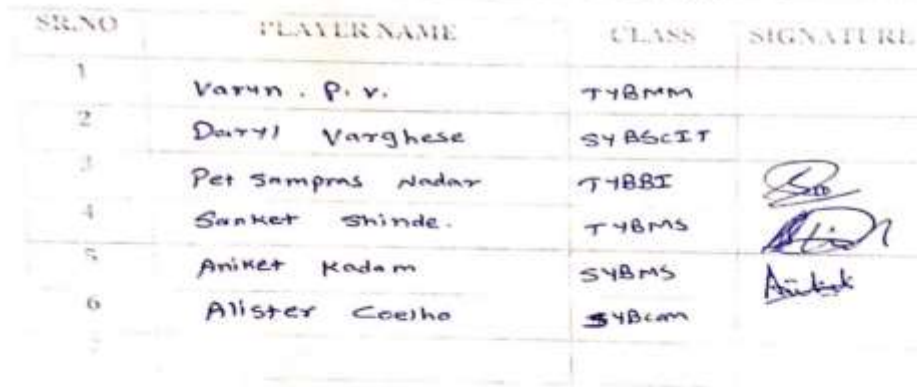 SR.NO PLAYER NAME CLASS SIGNATURE
1 Varun . P. V. TYBMM
2 Daryl Varghese SYBScIT
3 Pet Sampras Nadar TYBBI
4 Sanket Shinde. TYBMS
5 Aniket Kadam SYBMS Aniket
6 Alister Coelho SYBcom